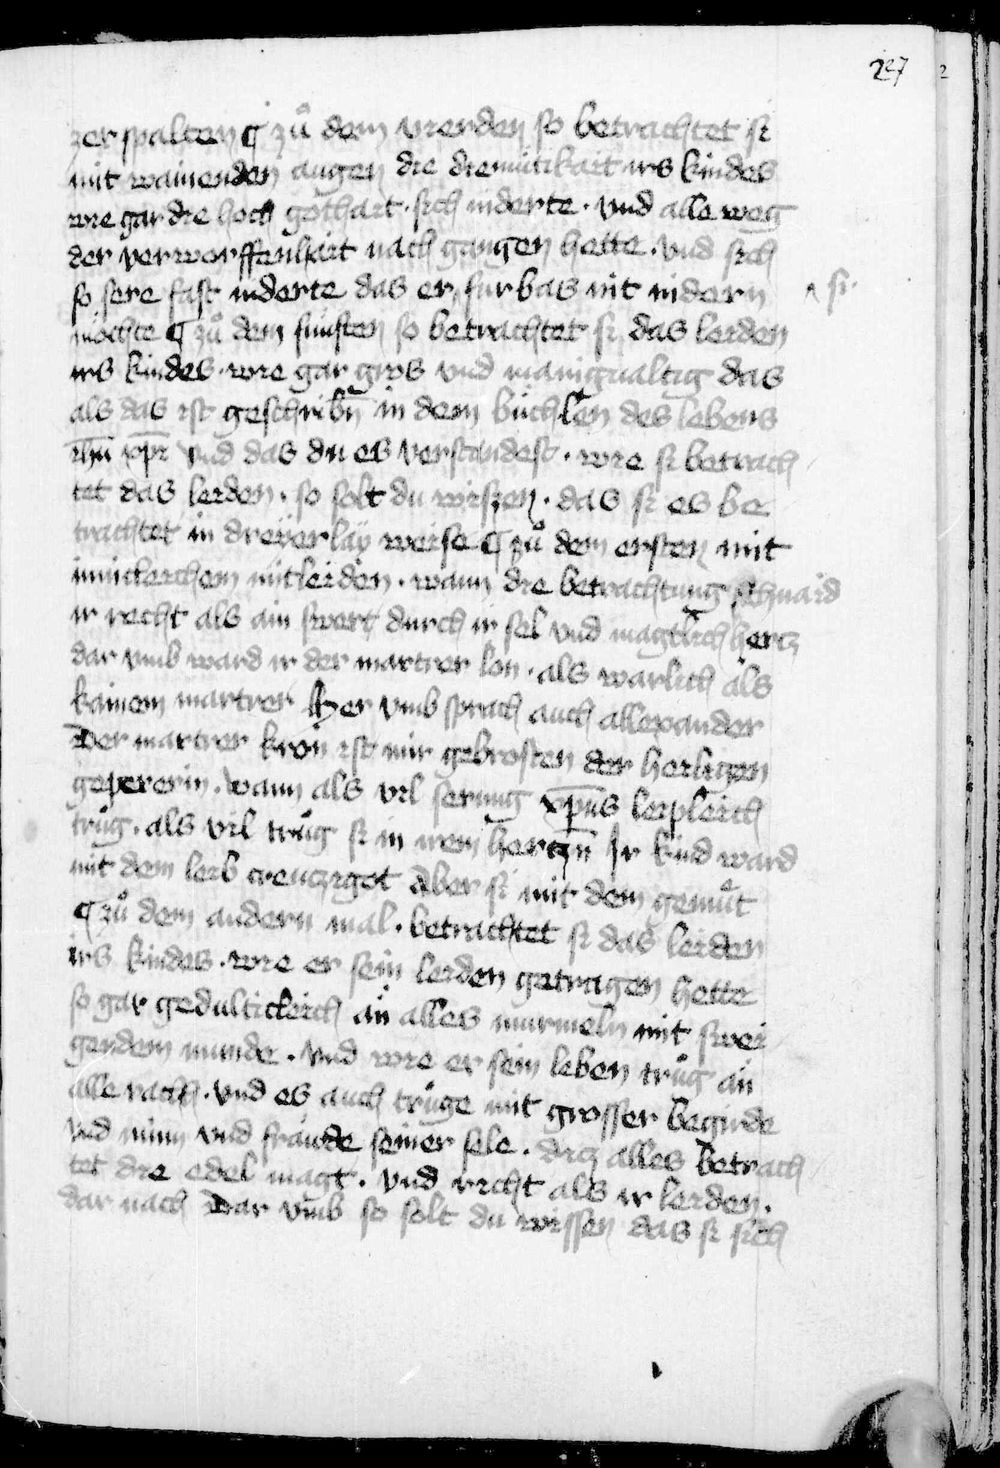 237
zerspalten ¶ zů dem vierden so betrachtet si
mit wainenden augen die diemütikait irs kindes
wie gar die hoch gothait · sich niderte · vnd alle weg
der verworffenhait nach gangen hette · vnd sich
so sere fast niderte das er ^ furbas nit nidern ^ si ·
möchte ¶ zů dem funften so betrachtet si das leiden
irs kindes · wie gar gros vnd manigualtig das
als das ist geschribn̄ in dem büchlen des lebens
ihū xp̄i vnd das du es verstandest · wie si betrach
tet das leiden · so solt du wissen · das si es be
trachtet in dreÿerlaÿ weise ¶ zů dem ersten mit
inniclichem mitleiden · wann die betrachtung schnaid
ir recht als ain swert durch ir sel vnd magtlich hertz
dar vmb ward ir der martrer lon · als warlich als
kainem martrer Her vmb sprach auch allexander
Der martrer kron ist mir gebrosten der heiligen
gepererin · wann als vil serung xp̄us leiplich
trůg · als vil trůg si in irem hertzn̄ Ir kind ward
mit dem leib creuczigot Aber si mit dem gemůt
¶ zů dem andern mal · betrachtet si das leiden
irs kindes · wie er sein leiden getragen hette
so gar gedulticleich än alles murmeln mit swei
gendem munde · vnd wie er sein leben trůg än
alle rach · vnd es auch trůge mit grosser begirde
vnd minn vnd fräude seiner sele · ditz alles betrach
tet die edel magt · vnd richt als ir leiden ·
dar nach Dar vmb so solt du wissen das si sich